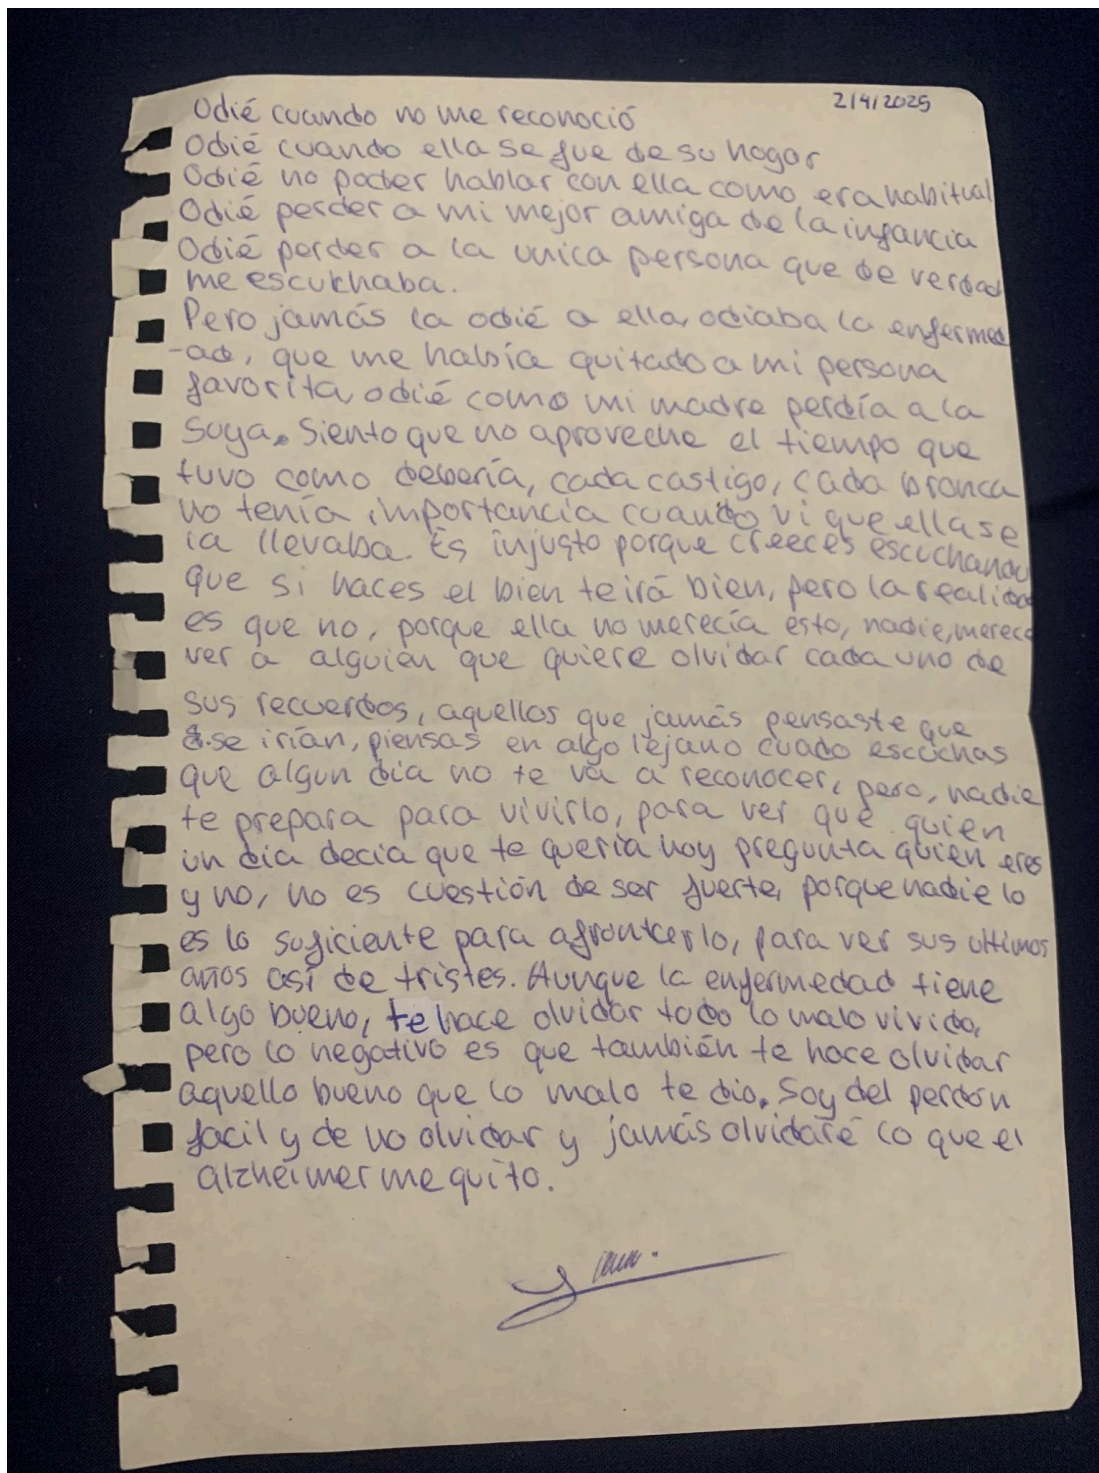 2/4/2025
Odié cuando no me reconoció
Odié cuando ella se fue de su hogar
Odié no poder hablar con ella como era habitual
Odié perder a mi mejor amiga de la infancia
Odié perder a la unica persona que de verdad
me escuchaba.
Pero jamás la odié a ella, odiaba la enfermed
-ad, que me había quitado a mi persona
favorita, odié como mi madre perdía a la
suya. Siento que no aproveche el tiempo que
tuvo como debería, cada castigo, cada bronca
no tenía importancia cuando vi que ella se
la llevaba. Es injusto porque creeces escuchando
que si haces el bien te irá bien, pero la realidad
es que no, porque ella no merecía esto, nadie, merece
ver a alguien que quiere olvidar cada uno de
sus recuerdos, aquellos que jamás pensaste que
se irían, piensas en algo lejano cuado escuchas
que algun dia no te va a reconocer, pero, nadie
te prepara para vivirlo, para ver que quien
un dia decia que te queria hoy pregunta quien eres
y no, no es cuestión de ser fuerte, porque nadie lo
es lo suficiente para afrontarlo, para ver sus ultimos
años así de tristes. Aunque la enfermedad tiene
algo bueno, te hace olvidar todo lo malo vivido,
pero lo negativo es que también te hace olvidar
aquello bueno que lo malo te dio. Soy del perdón
facil y de no olvidar y jamás olvidaré lo que el
alzheimer me quito.